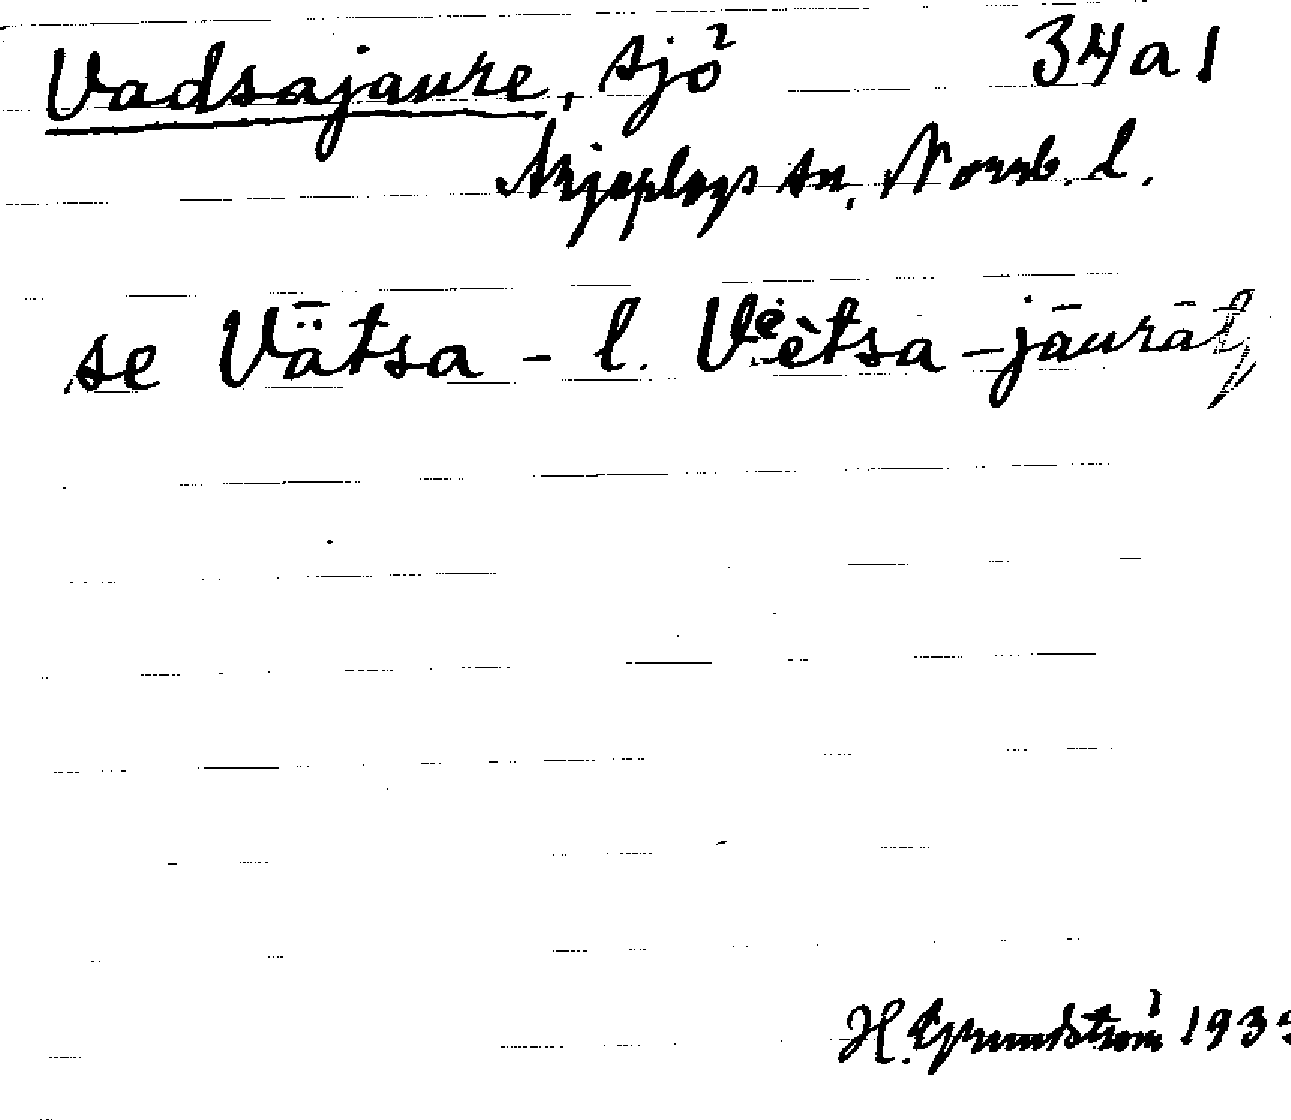 Vadsajaure, sjö 34a1
Arjeplogs sn, Norrb. l.
se Vǟtsa - l. Vètsa - jāurāt
H. Grundström 193